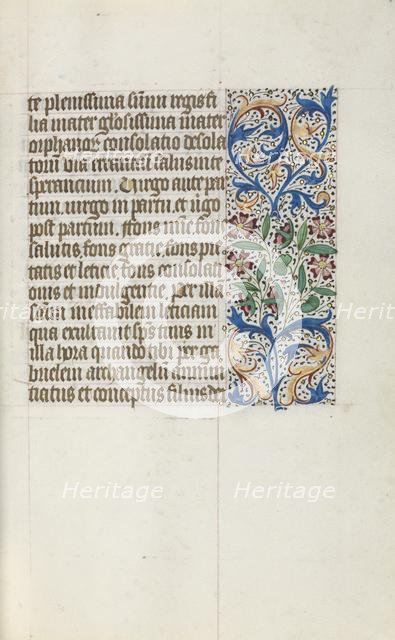 te plenissima sum̄i regis fi
lia mater gl̄osissima mater
orphanoꝝ consolatio desola
torū via errantiū salus in te
sperancium. Uirgo ante par
tum uirgo in partu et uirgo
post partum. ffons mīe fons
salutis. fons gratie. fons pie
tatis et leticie fons consolati
onis et indulgentie. per illā
sc̄am ineffabilem leticiam
qua exultauit sp̄s tuus in
illa hora quando tibi per ga
brielem archangelū annun
tiatus et conceptus filius dei
Heritage
Heritage